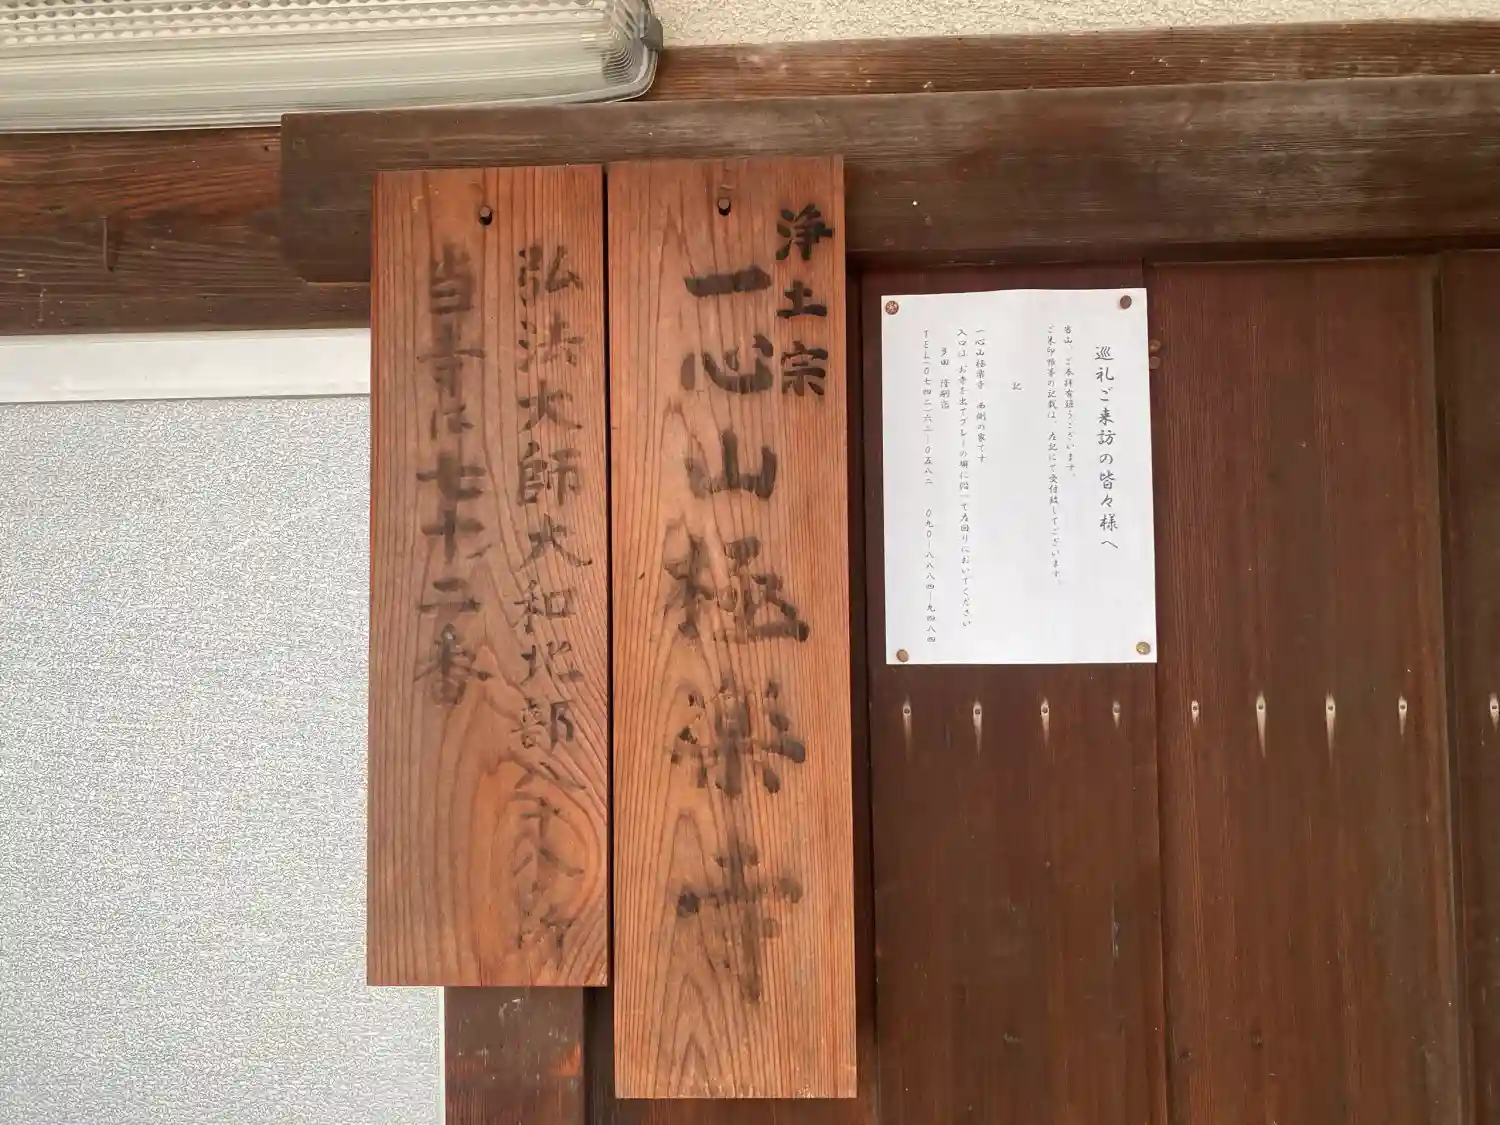 巡礼ご来訪の皆々様へ
当山、ご参拝有難うございます。
ご朱印帳等の記載は、左記にて受付致してございます。
記
一心山極楽寺 西側の家です
入口は、お寺を出てブレーの塀に沿って左回りにおいでください
多田 隆嗣迄
TEL(0七四二)六二ー0五八二 0九0ー八八八四ー九四八四
浄土宗
一心山極楽寺
弘法大師大和北部八十八ヶ所
当寺は七十二番